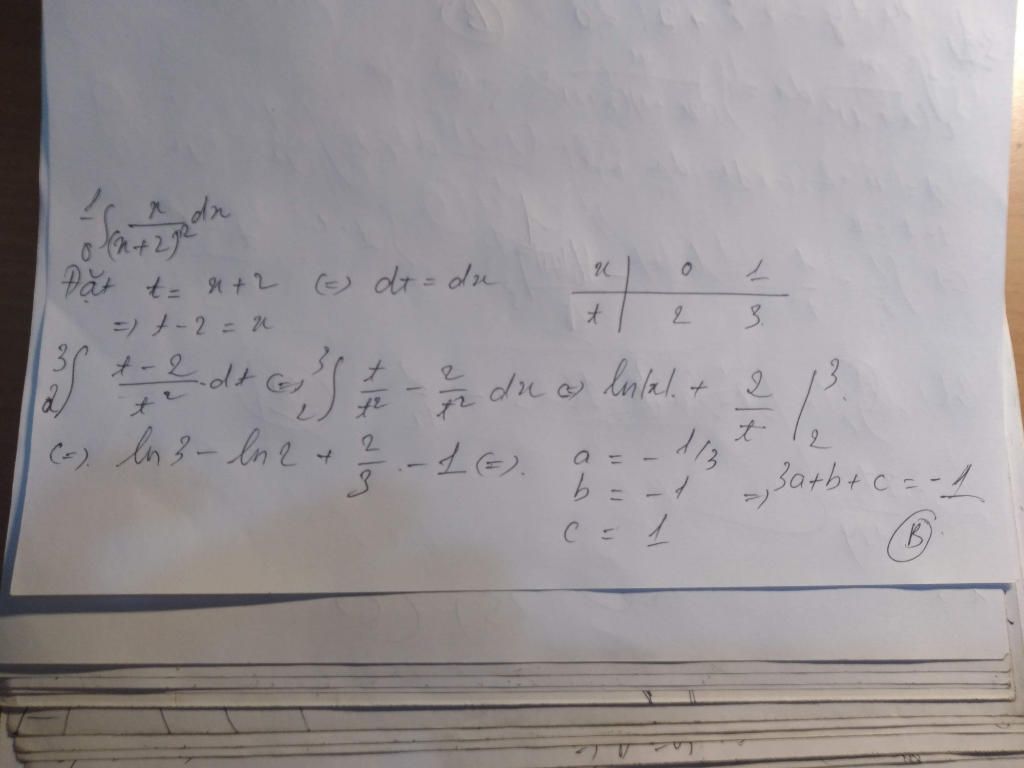 1
0 ∫ x/(x+2)² dx
Đặt t = x+2 (=) dt = dx
=) t - 2 = x
x | 0 1
t | 2 3.
3
2 ∫ (t - 2)/t² . dt (=) 3
2 ∫ t/t² - 2/t² dx (=) ln|x|. + 2/t | 3.
2
(=). ln3 - ln2 + 2/3 . - 1 (=).
a = - 1/3
b = - 1 =) 3a+b+c = - 1
c = 1
B